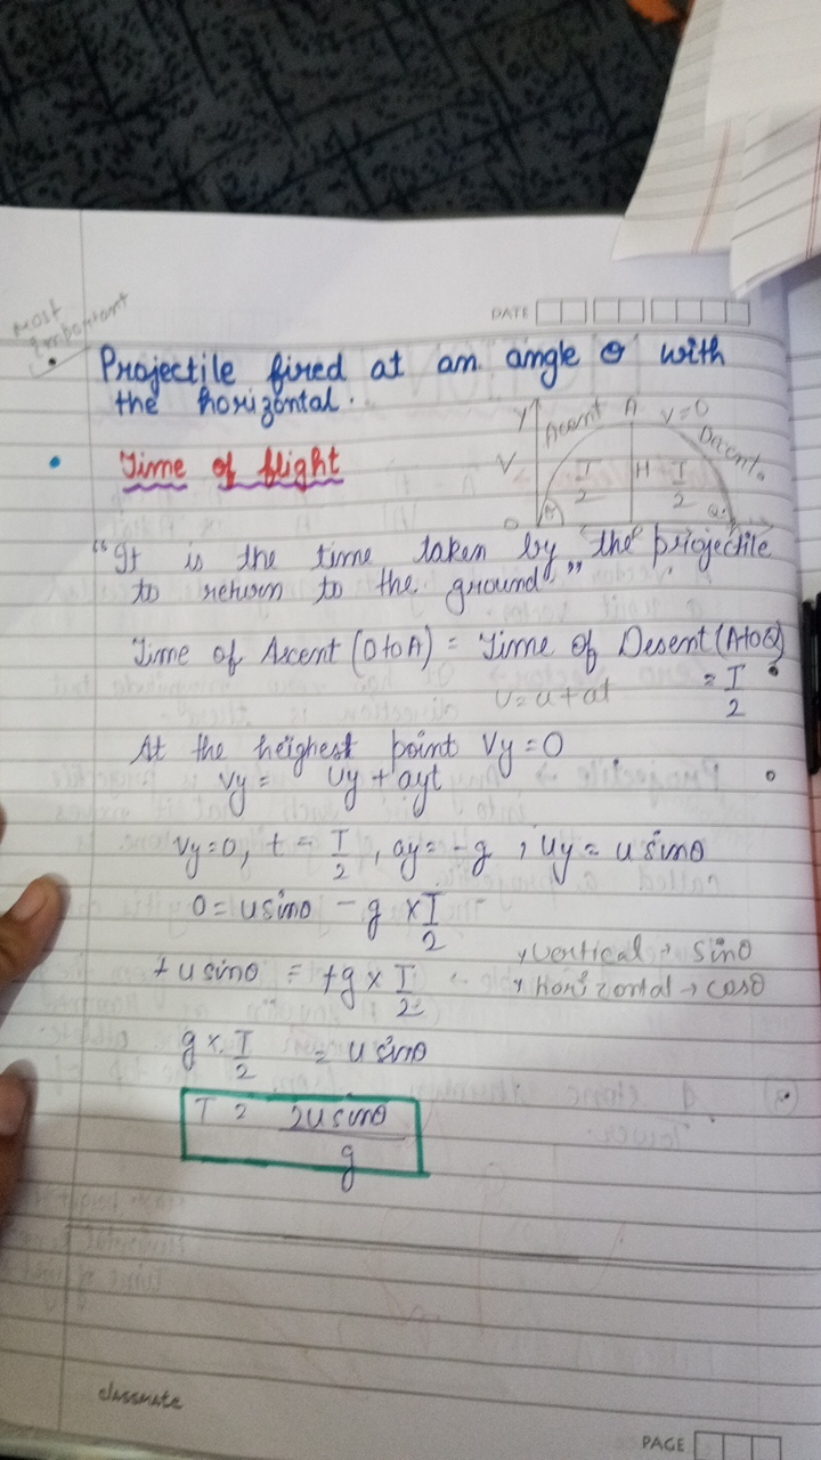 Most
important
DATE
Projectile fired at an angle θ with
the horizontal.
Y Acent A v=0
Decent.
V T/2 H T/2
O θ
Time of flight
"It is the time taken by the projectile
to return to the ground"
Time of Ascent (O to A) = Time of Desent (A to Q)
v=u+at = T/2
At the heighest point Vy=0
Vy = Uy + ayt
Vy=0, t = T/2, ay=-g, uy = u sinθ
0 = u sinθ - g × T/2
+ u sinθ = +g × T/2
vertical → sinθ
Horizontal → cosθ
g × T/2 = u sinθ
T = 2u sinθ/g
classmate
PAGE